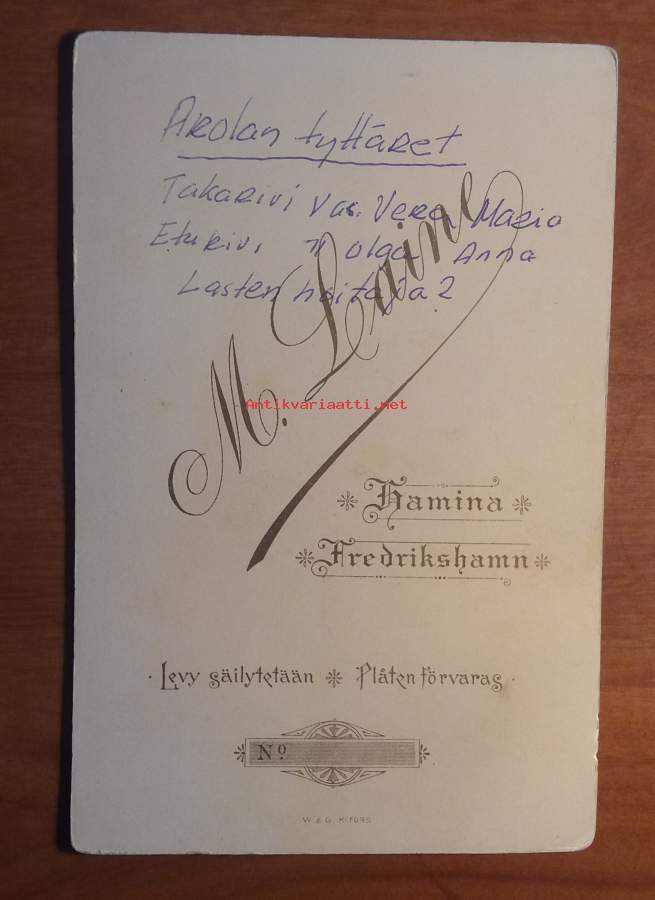 Arolan tyttäret
Takarivi vas. Vera Maria
Eturivi " Olga Anna
Lasten hoitajia 2
M. Laine
Antikvariaatti.net
Hamina
Fredrikshamn
Levy säilytetään Plåten förvaras
No
W & G.